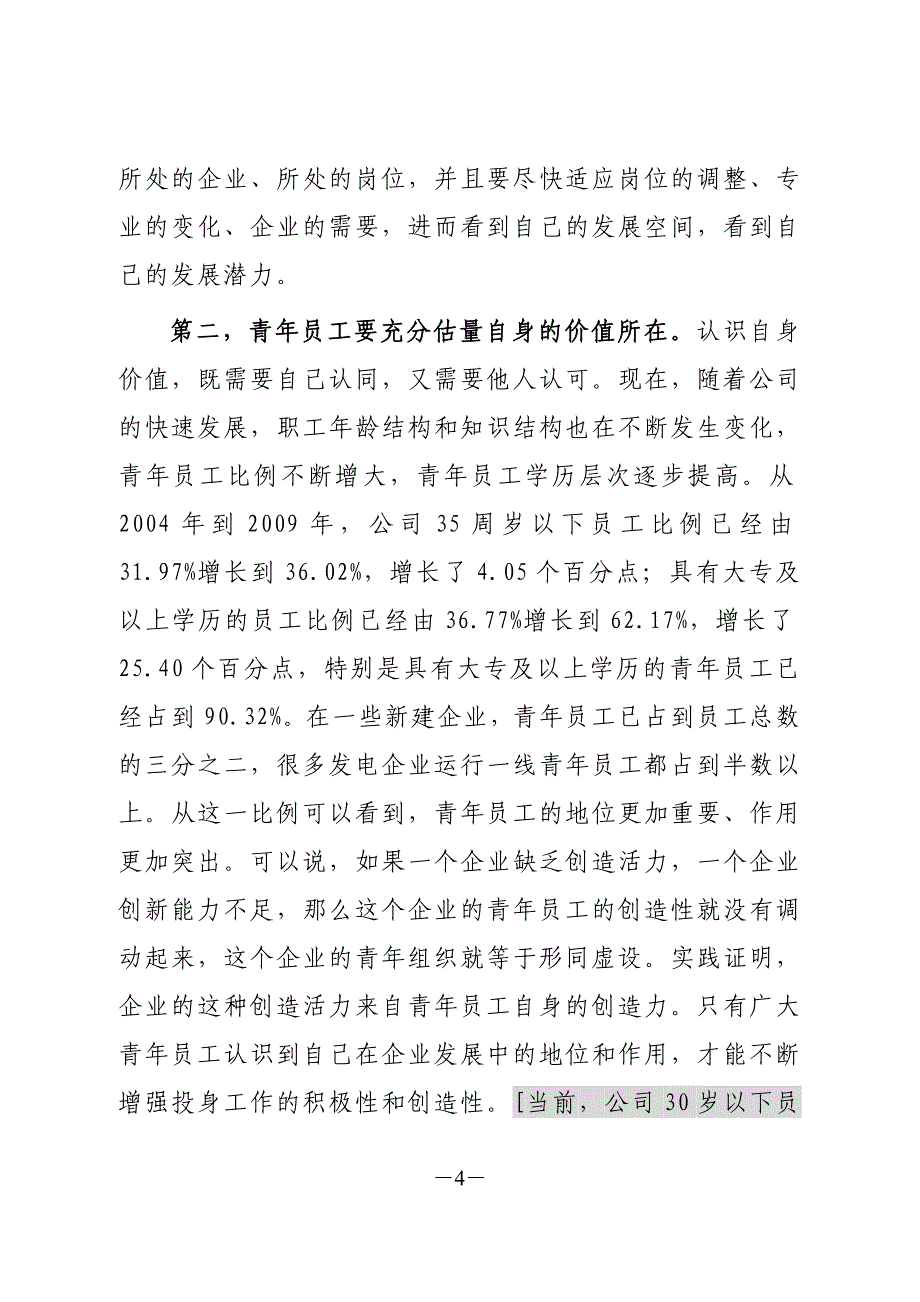 所处的企业、所处的岗位，并且要尽快适应岗位的调整、专
业的变化、企业的需要，进而看到自己的发展空间，看到自
己的发展潜力。
第二，青年员工要充分估量自身的价值所在。认识自身
价值，既需要自己认同，又需要他人认可。现在，随着公司
的快速发展，职工年龄结构和知识结构也在不断发生变化，
青年员工比例不断增大，青年员工学历层次逐步提高。从
2004 年到 2009 年，公司 35 周岁以下员工比例已经由
31.97%增长到 36.02%，增长了 4.05 个百分点；具有大专及
以上学历的员工比例已经由 36.77%增长到 62.17%，增长了
25.40 个百分点，特别是具有大专及以上学历的青年员工已
经占到 90.32%。在一些新建企业，青年员工已占到员工总数
的三分之二，很多发电企业运行一线青年员工都占到半数以
上。从这一比例可以看到，青年员工的地位更加重要、作用
更加突出。可以说，如果一个企业缺乏创造活力，一个企业
创新能力不足，那么这个企业的青年员工的创造性就没有调
动起来，这个企业的青年组织就等于形同虚设。实践证明，
企业的这种创造活力来自青年员工自身的创造力。只有广大
青年员工认识到自己在企业发展中的地位和作用，才能不断
增强投身工作的积极性和创造性。[当前，公司 30 岁以下员
—4—